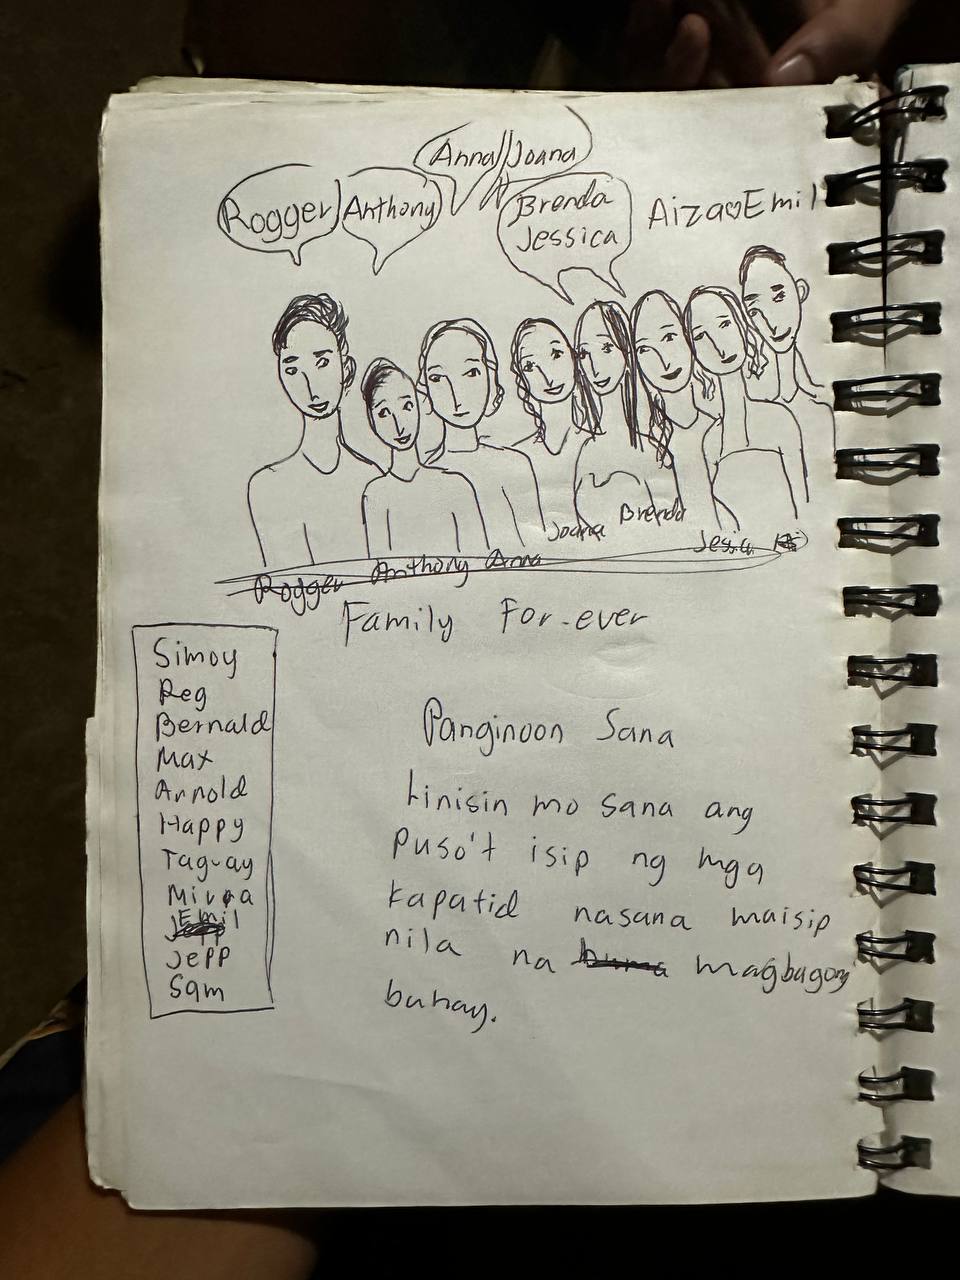 Anna/Joana
Rogger Anthony
Brenda
Jessica
Aiza♡Emil
Joana Brenda Jessica
Rogger Anthony Anna
Family For-ever
Simoy
Reg
Bernald
Max
Arnold
Happy
Taguay
Mirna
Emil
Jepp
Sam
Panginoon Sana
Linisin mo sana ang
Puso't isip ng mga
kapatid nasana maisip
nila na magbagong
buhay.